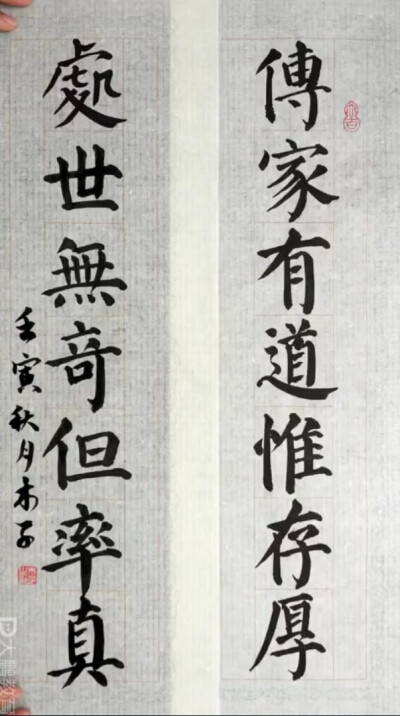 傳家有道惟存厚
處世無奇但率真
壬寅秋月木子